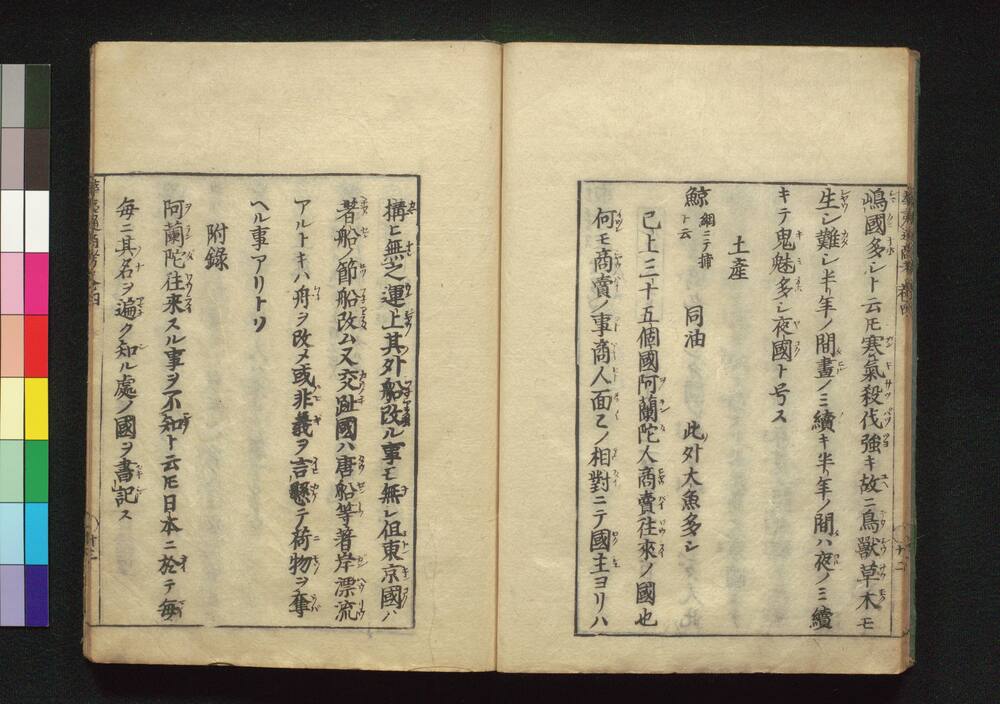 嶋國多シト云𪜈寒氣殺伐強キ故ニ鳥獸草木モ
生シ難シ半年ノ間晝ノミ續キ半年ノ間ハ夜ノミ續
キテ鬼魅多シ夜國ト号ス
土産
鯨 網ニテ捕ト云 同油 此外大魚多シ
已上三十五個國阿蘭陀人商賣往來ノ國也
何モ商賣ノ事商人面〻ノ相對ニテ國主ヨリハ
搆ヒ無之運上其外船改ル事モ無レ但東京國ハ
著船ノ節船改ム又交趾國ハ唐船等著岸漂流
アルトキハ舟ヲ改メ或非義ヲ言懸テ荷物ヲ奪
ヘル事アリトソ
附錄
阿蘭陀往来スル事ヲ不知ト云𪜈日本ニ於テ毎
毎ニ其名ヲ遍ク知ル處ノ國ヲ書記ス